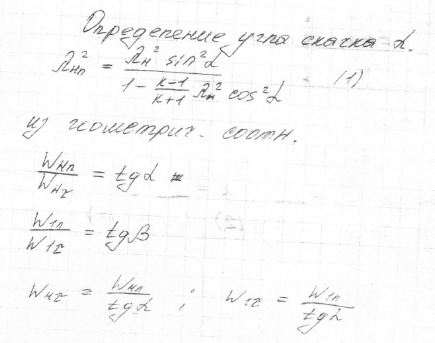 Определение угла скачка α.
λнп² = λн² sin²α / (1 − (к−1)/(к+1) λн² cos²α) (1)
из геометрич. соотн.
Wнп / Wнτ = tgα
W1п / W1τ = tgβ
Wнτ = Wнп / tgα ; W1τ = W1п / tgα